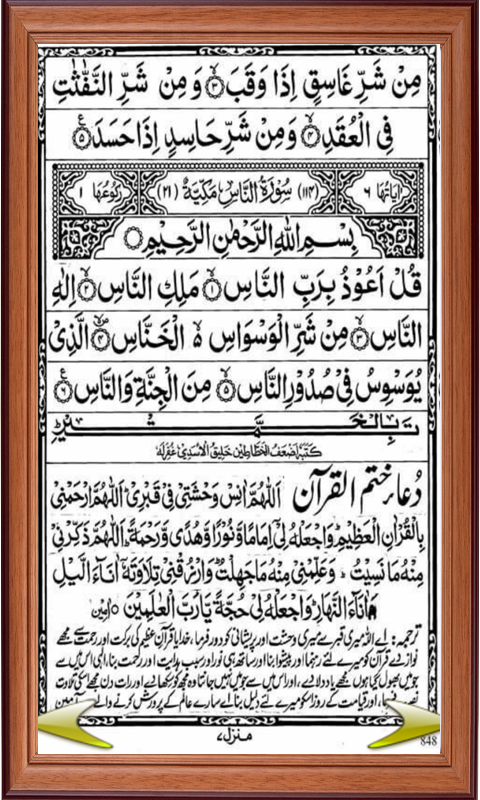 مِنْ شَرِّ غَاسِقٍ اِذَا وَقَبَ ۙ﴿۳﴾ وَ مِنْ شَرِّ النَّفّٰثٰتِ
فِى الْعُقَدِ ۙ﴿۴﴾ وَ مِنْ شَرِّ حَاسِدٍ اِذَا حَسَدَ ﴿۵﴾
اٰيَاتُهَا ۶ (۱۱۴) سُوْرَةُ النَّاسِ مَكِّيَّةٌ (۲۱) رُكُوْعُهَا ۱
بِسْمِ اللهِ الرَّحْمٰنِ الرَّحِيْمِ
قُلْ اَعُوْذُ بِرَبِّ النَّاسِ ۙ﴿۱﴾ مَلِكِ النَّاسِ ۙ﴿۲﴾ اِلٰهِ
النَّاسِ ۙ﴿۳﴾ مِنْ شَرِّ الْوَسْوَاسِ ە الْخَنَّاسِ ۙ﴿۴﴾ الَّذِىْ
يُوَسْوِسُ فِىْ صُدُوْرِ النَّاسِ ۙ﴿۵﴾ مِنَ الْجِنَّةِ وَ النَّاسِ ﴿۶﴾
تَمَّتْ بِالْخَيْرِ
كتبه اضعف الخطاطين خليق الاسدي غفرله
دُعاء ختم القرآن اَللّٰهُمَّ اٰنِسْ وَحْشَتِىْ فِىْ قَبْرِىْ اَللّٰهُمَّ ارْحَمْنِىْ
بِالْقُرْاٰنِ الْعَظِيْمِ وَاجْعَلْهُ لِىْ اِمَامًا وَّنُوْرًا وَّهُدًى وَّرَحْمَةً اَللّٰهُمَّ ذَكِّرْنِىْ
مِنْهُ مَا نَسِيْتُ وَعَلِّمْنِىْ مِنْهُ مَا جَهِلْتُ وَارْزُقْنِىْ تِلَاوَتَهٗ اٰنَآءَ الَّيْلِ
وَاٰنَآءَ النَّهَارِ وَاجْعَلْهُ لِىْ حُجَّةً يَّا رَبَّ الْعٰلَمِيْنَ ۝ اٰمين
ترجمہ: اے اللہ میری قبر سے میری وحشت اور پریشانی کو دور فرما، خدایا قرآن عظیم کی برکت اور رحمت سے مجھے
نوازئیے قرآن کو میرے لئے رہنما اور پیشوا بنا اور ساتھ ہی نور اور سبب ہدایت اور رحمت بنا، الٰہی اس میں سے
جو میں بھول گیا ہوں مجھے یاد دلائیے، اور اس میں سے جو میں نہیں جانتا وہ مجھ کو سکھائیے اور رات دن مجھے اسکی تلاوت
اور قیامت کے روز اسکو میرے لئے دلیل بنا اے سارے عالم کے پرورش کرنے والے
منزل ۷
848